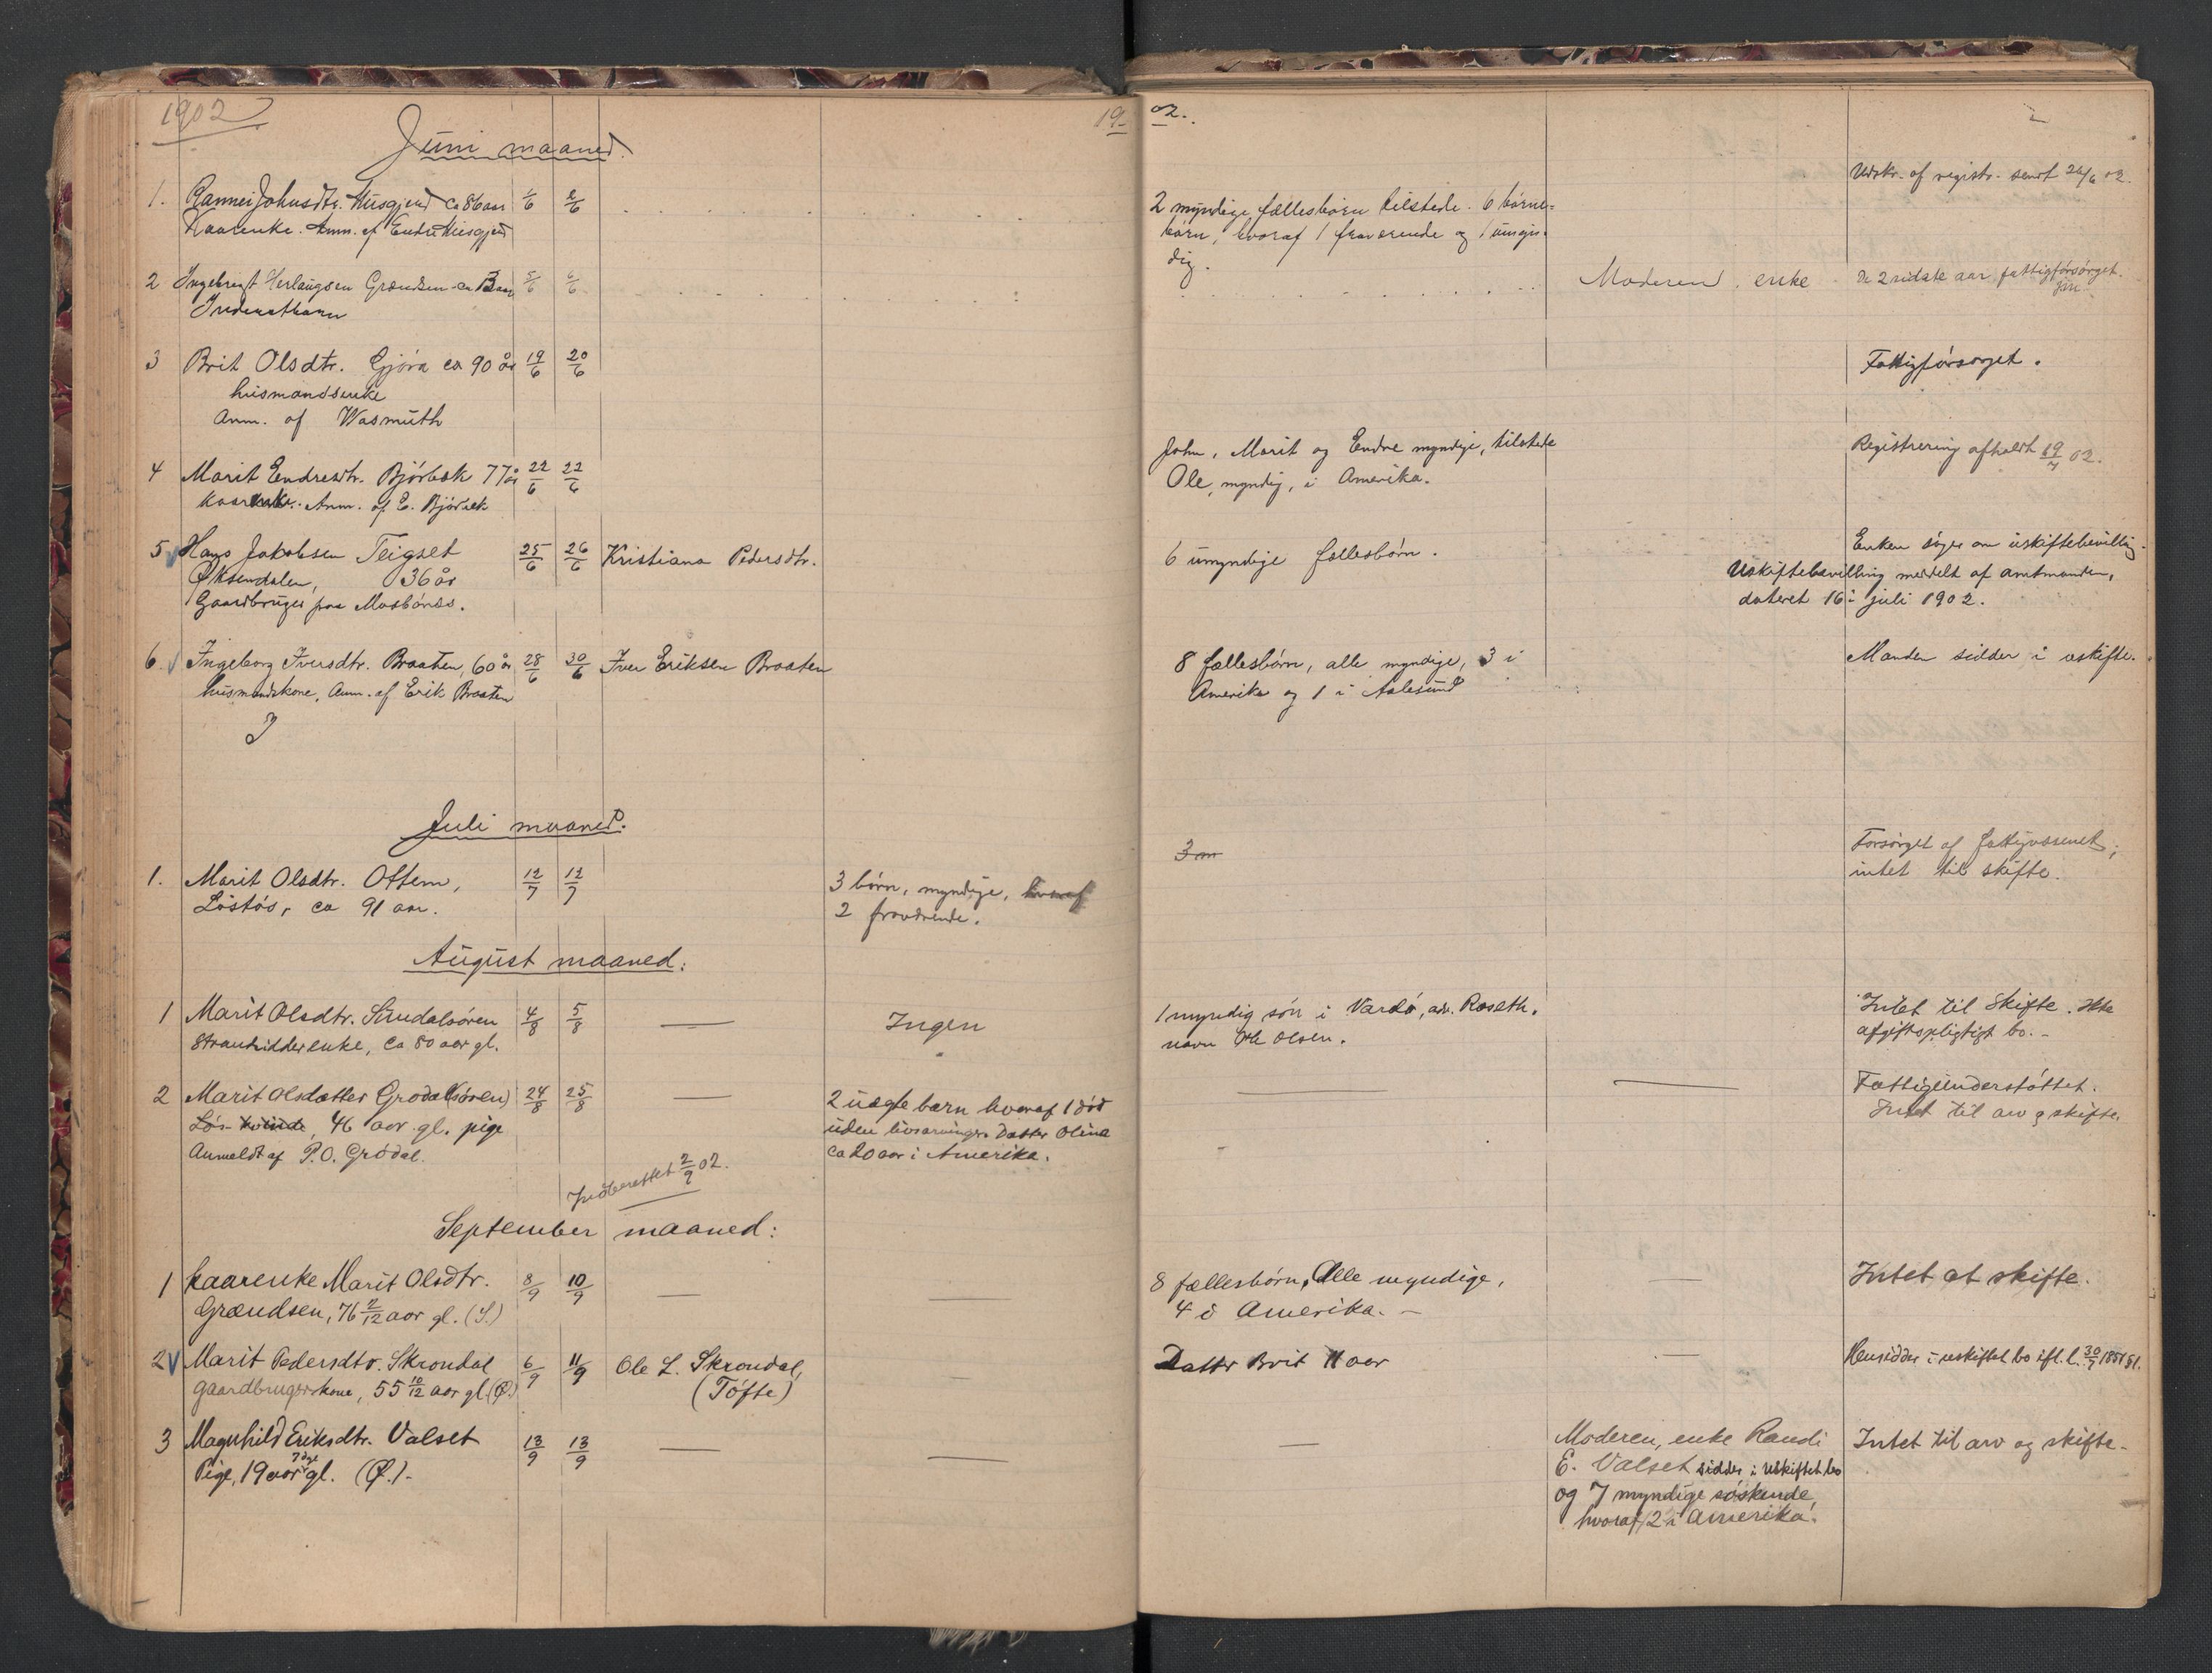 1902
1902.
Juni maaned.
1. Rannei Johnsdtr. Husgjerd ca 86 aar 1/6 2/6
Kaarenke. Anm. af Endre Husgjerd
2 myndige fællesbørn tilstede. 6 børne-
børn, hvoraf 1 fraværende og 1 umyn-
dig.
Udskr. af registr. sendt 26/6 02.
2 Ingebrigt Herlaugsen Grændsen 5/6 6/6
Moderen, enke
De 2 sidste aar fattigforsørget.
3 Brit Olsdtr. Gjøra ca 90 år 19/6 20/6
husmandsenke
Anm. af Wasmuth
Fattigforsørget.
4 Marit Endresdtr. Bjørbæk 77 år 22/6 22/6
kaarenke. Anm. af E. Bjørbæk
John, Marit og Endre myndige, tilstede
Ole, myndig, i Amerika.
Registrering afholdt 19/7 02.
5 Hans Jakobsen Teigset 25/6 26/6 Kristiana Pedersdtr.
Øksendalen, 36 år
Gaardbruger paa Mosbønes.
6 umyndige fællesbørn.
Enken søger om uskiftebevilling.
Uskiftebevilling meddelt af amtmanden,
dateret 16: juli 1902.
6. Ingeborg Iversdtr. Braaten, 60 år 28/6 30/6 Iver Eriksen Braaten
husmandskone. Anm. af Erik Braaten
8 fællesbørn, alle myndige, 3 i
Amerika og 1 i Aalesund
Manden sidder i uskifte.
Juli maaned.
1. Marit Olsdtr. Ottem, 12/7 12/7
Løstøs, ca 91 aar.
3 børn, myndige, hvoraf
2 fraværende.
3 m
Forsørget af fattigvæsenet;
intet til skifte.
August maaned:
1 Marit Olsdtr. Sundalsøren 4/8 5/8 — Ingen
Strandsidderenke, ca 80 aar gl.
1 myndig søn i Vardø, adr. Roseth.
navn Ole Olsen.
Intet til Skifte. Ikke
afgiftspligtigt bo. -
2 Marit Olsdatter Grødal(søren) 24/8 25/8 —
Løs kvinde, 46 aar gl. pige
Anmeldt af P.O. Grødal.
2 uægte børn hvoraf 1 død
uden livsarvinger. Datter Oline
ca 20 aar i Amerika.
Fattigunderstøttet.
Intet til arv og skifte.
Indberettet 2/9 02.
September maaned:
1 kaarenke Marit Olsdtr. 8/9 10/9 — —
Grændsen, 76 2/12 aar gl. (S.)
8 fællesbørn, Alle myndige,
4 i Amerika. -
Intet at skifte.
2 Marit Pedersdtr. Skrondal 6/9 11/9 Ole L. Skrondal,
gaardbrugerskone, 55 10/12 aar gl. (Ø.) (Tøfte)
Datter Brit 11 aar
Hensidder i uskiftet bo ifl. l. 30/7 1851 §1.
3 Magnhild Eriksdtr. Valset 13/9 13/9 — —
Pige, 19 aar gl. (Ø.) -
Moderen, enke Randi
E. Valset sidder i uskiftet bo
og 7 myndige søskende,
hvoraf 2 i Amerika.
Intet til arv og skifte.